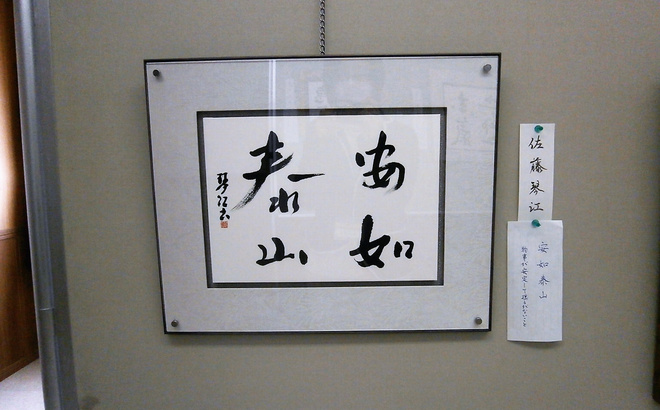 安如
泰山
琴江書
佐藤琴江
安如泰山
物事が安定して揺るがないこと